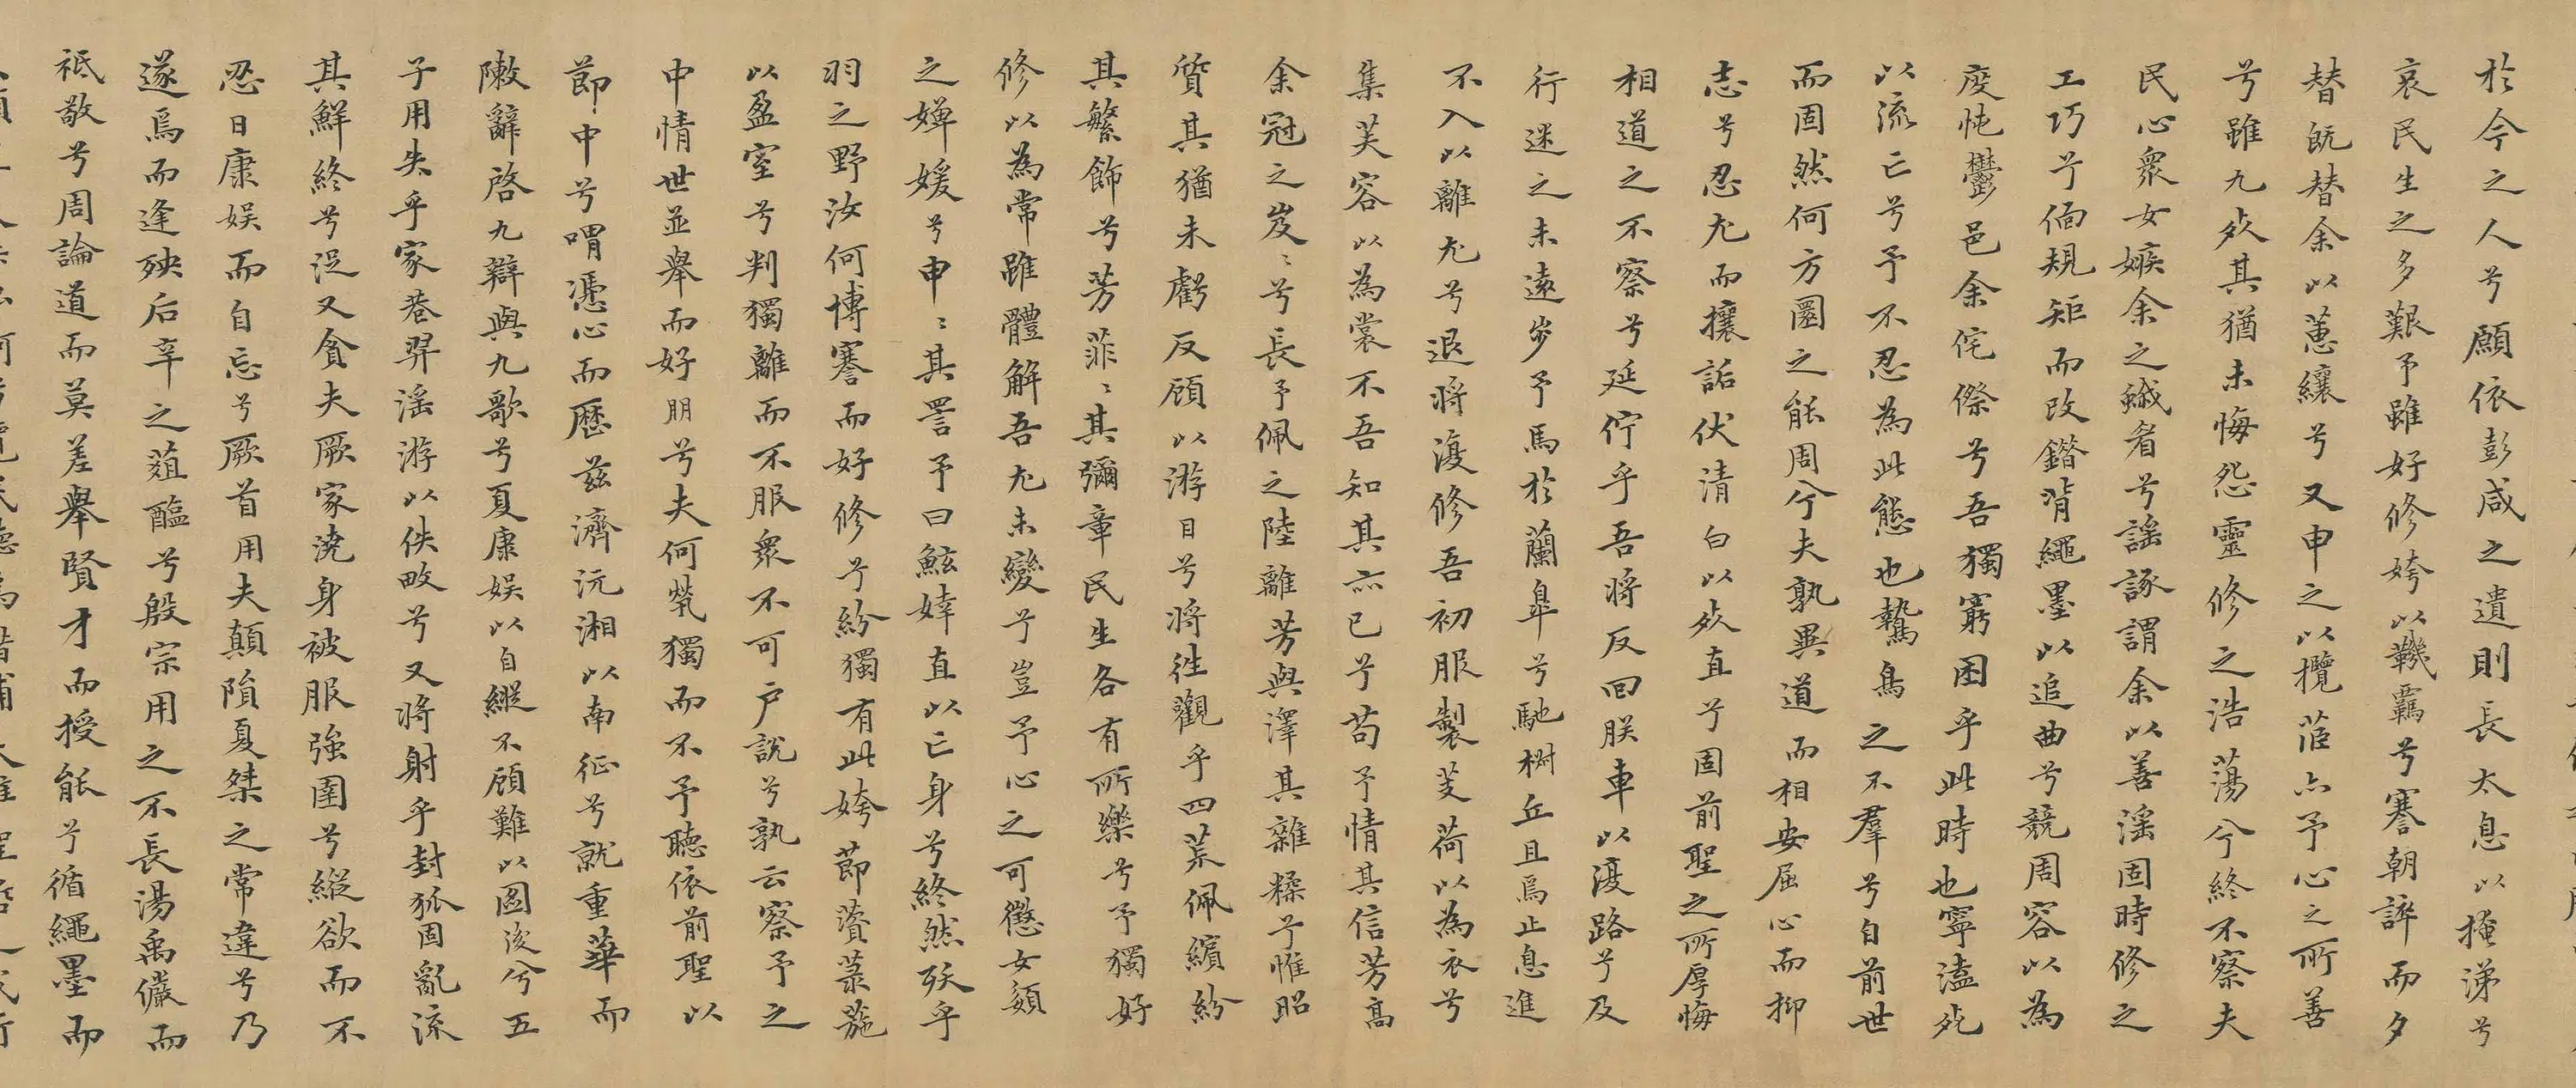 於今之人兮願依彭咸之遺則長太息以掩涕兮
哀民生之多艱予雖好修姱以鞿羈兮謇朝誶而夕
替既替余以蕙纕兮又申之以攬茝亦予心之所善
兮雖九死其猶未悔怨靈修之浩蕩兮終不察夫
民心眾女嫉余之蛾眉兮謠諑謂余以善淫固時修之
工巧兮偭規矩而改錯背繩墨以追曲兮競周容以為
度忳鬱邑余侘傺兮吾獨窮困乎此時也寧溘死
以流亡兮予不忍為此態也鷙鳥之不羣兮自前世
而固然何方圜之能周兮夫孰異道而相安屈心而抑
志兮忍尤而攘詬伏清白以死直兮固前聖之所厚悔
相道之不察兮延佇乎吾將反回朕車以復路兮及
行迷之未遠步予馬於蘭皋兮馳椒丘且焉止息進
不入以離尤兮退將復修吾初服製芰荷以為衣兮
集芙容以為裳不吾知其亦已兮苟予情其信芳高
余冠之岌〻兮長予佩之陸離芳與澤其雜糅兮惟昭
質其猶未虧反顧以游目兮將往觀乎四荒佩繽紛
其繁飾兮芳菲〻其彌章民生各有所樂兮予獨好
修以為常雖體解吾尤未變兮豈予心之可懲女嬃
之嬋媛兮申〻其詈予曰鮌婞直以亡身兮終然殀乎
羽之野汝何博謇而好修兮紛獨有此姱節薋菉葹
以盈室兮判獨離而不服眾不可戶說兮孰云察予之
中情世並舉而好朋兮夫何煢獨而不予聽依前聖以
節中兮喟憑心而歷茲濟沅湘以南征兮就重華而
敶辭啓九辯與九歌兮夏康娛以自縱不顧難以圖後兮五
子用失乎家巷羿淫游以佚畋兮又將射乎封狐固亂流
其鮮終兮浞又貪夫厥家澆身被服強圉兮縱欲而不
忍日康娛而自忘兮厥首用夫顛隕夏桀之常違兮乃
遂焉而逢殃后辛之葅醢兮殷宗用之不長湯禹儼而
祗敬兮周論道而莫差舉賢才而授能兮循繩墨而